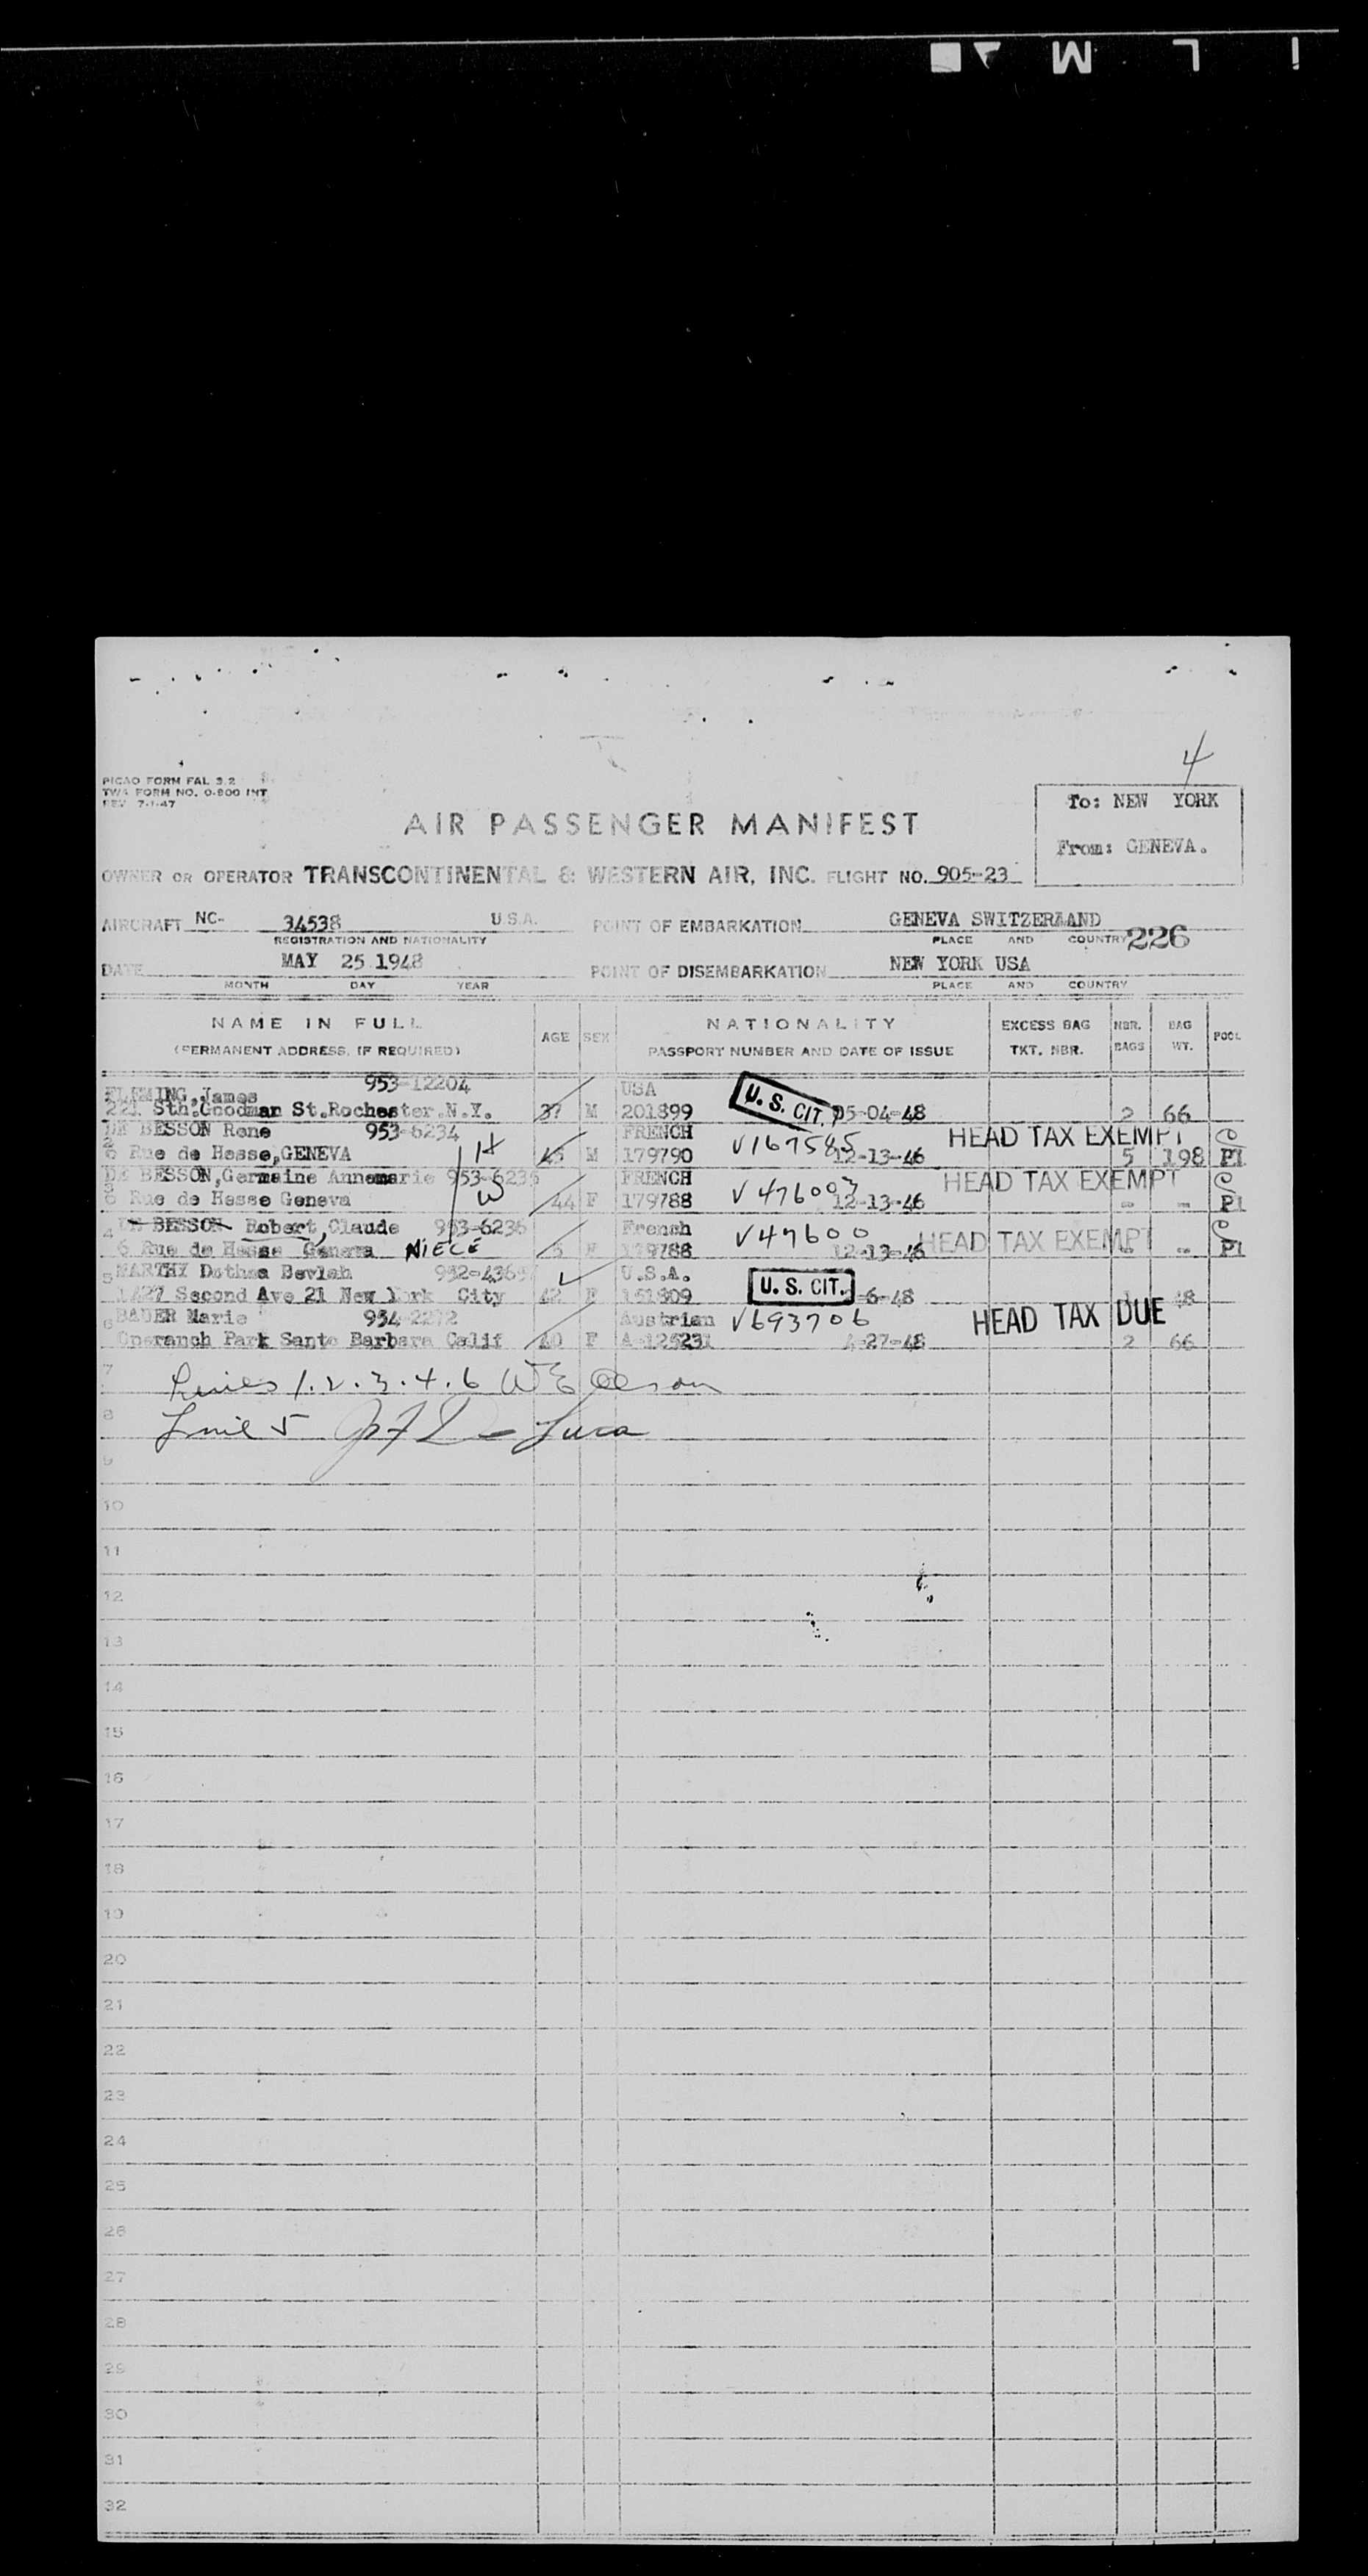 4
PICAO FORM FAL 3.2
TWA FORM NO. 0-800 INT
REV 7-1-47
To: NEW YORK
AIR PASSENGER MANIFEST
From: GENEVA.
OWNER OR OPERATOR TRANSCONTINENTAL & WESTERN AIR, INC. FLIGHT NO. 905-23
AIRCRAFT NC- 34538 U.S.A. POINT OF EMBARKATION GENEVA SWITZERLAND
REGISTRATION AND NATIONALITY PLACE AND COUNTRY 226
DATE MAY 25 1948 POINT OF DISEMBARKATION NEW YORK USA
MONTH DAY YEAR PLACE AND COUNTRY
NAME IN FULL AGE SEX NATIONALITY EXCESS BAG NBR. BAG POOL
(PERMANENT ADDRESS, IF REQUIRED) PASSPORT NUMBER AND DATE OF ISSUE TKT. NBR. BAGS WT.
FLEMING, James 953-12204 USA U. S. CIT.
221 Sth.Goodman St.Rochester.N.Y. 37 M 201899 05-04-48 2 66
DE BESSON Rene 953-6234 H FRENCH V167585 HEAD TAX EXEMPT
2 6 Rue de Hesse,GENEVA 45 M 179790 12-13-46 5 198 PI
DE BESSON,Germaine Annemarie 953-6235 W FRENCH V 476003 HEAD TAX EXEMPT
3 6 Rue de Hesse Geneva 44 F 179788 12-13-46 - - PI
4 DE BESSON Robert, Claude 953-6236 French V47600 HEAD TAX EXEMPT
6 Rue de Hesse Geneva NIECE 5 F 179788 12-13-46 - - PI
5 952-4365 U.S.A. U. S. CIT.
1427 Second Ave 21 New York City 42 F 151809 -6-48 48
6 BAUER Marie 954-2272 Austrian V693706 HEAD TAX DUE
Park Santa Barbara Calif 40 F 4-27-48 2 66
7 Lines 1.2.3.4.6 W E Olson
8 Line 5 J F De Luca
9
10
11
12
13
14
15
16
17
18
19
20
21
22
23
24
25
26
27
28
29
30
31
32